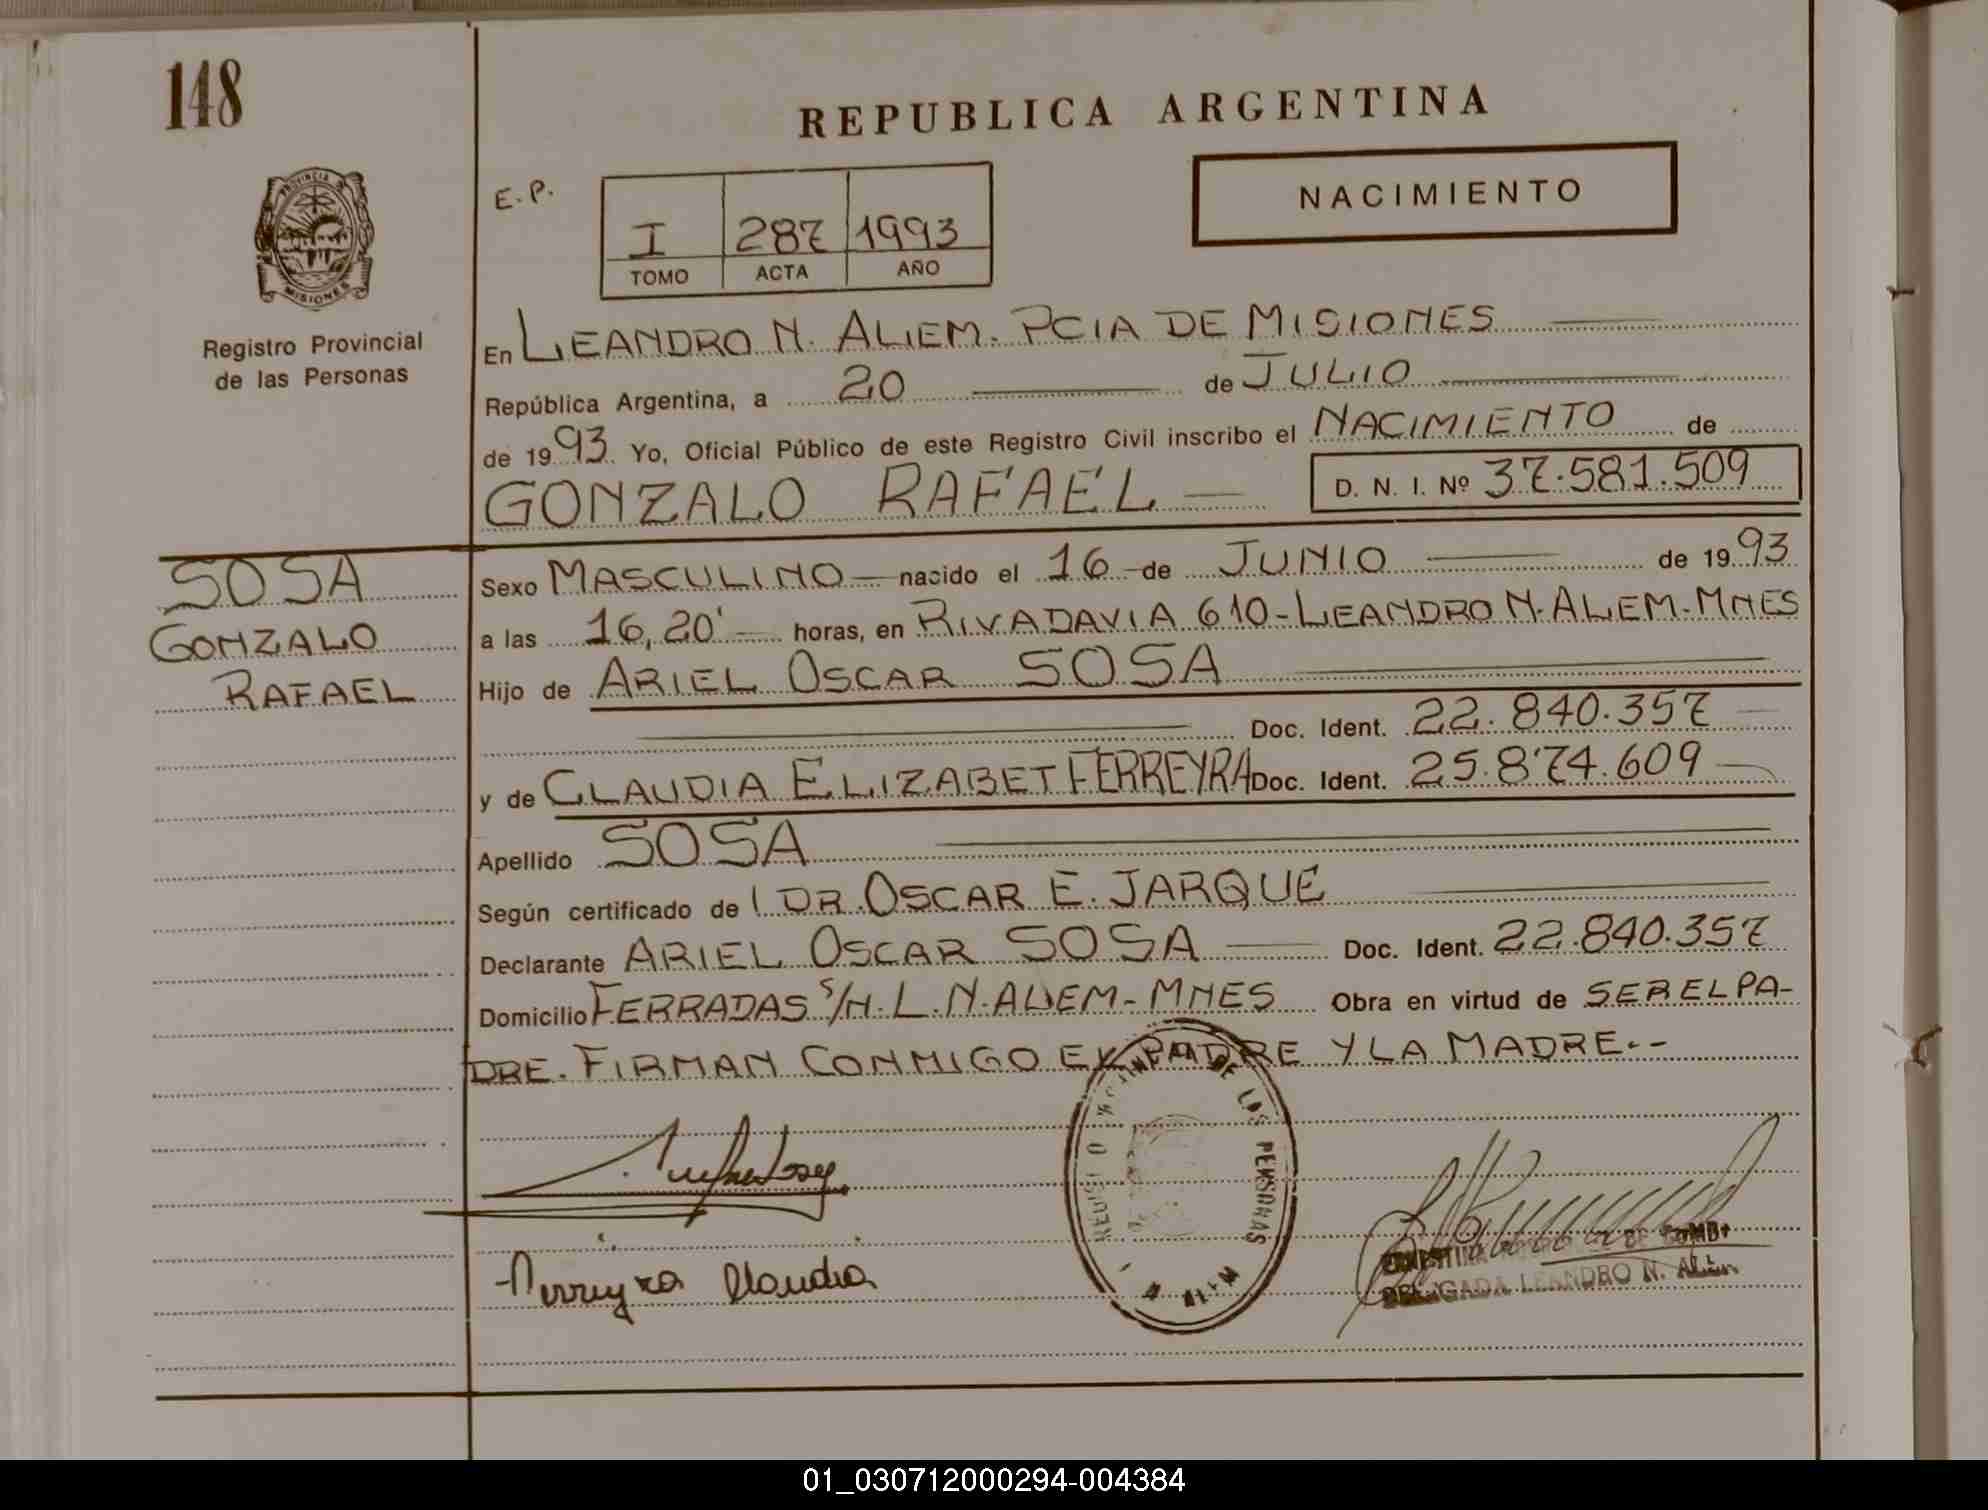 148
REPUBLICA ARGENTINA
PROVINCIA DE
MISIONES
Registro Provincial
de las Personas
E.P.
I 287 1993
TOMO ACTA AÑO
NACIMIENTO
En LEANDRO N. ALEM. PCIA DE MISIONES
República Argentina, a 20 de JULIO
de 1993. Yo, Oficial Público de este Registro Civil inscribo el NACIMIENTO de
GONZALO RAFAEL D. N. I. Nº 37.581.509
SOSA
GONZALO
RAFAEL
Sexo MASCULINO nacido el 16 de JUNIO de 1993
a las 16,20' horas, en RIVADAVIA 610-LEANDRO N. ALEM-MNES
Hijo de ARIEL OSCAR SOSA
Doc. Ident. 22.840.357
y de CLAUDIA ELIZABET FERREYRA Doc. Ident. 25.874.609
Apellido SOSA
Según certificado de DR. OSCAR E. JARQUE
Declarante ARIEL OSCAR SOSA Doc. Ident. 22.840.357
Domicilio FERRADAS S/N. L. N. ALEM-MNES Obra en virtud de SER EL PA-
DRE. FIRMAN CONMIGO EL PADRE Y LA MADRE.-
DE LAS PERSONAS
Ferreyra Claudia
DELEGADA LEANDRO N. ALEM
01_030712000294-004384